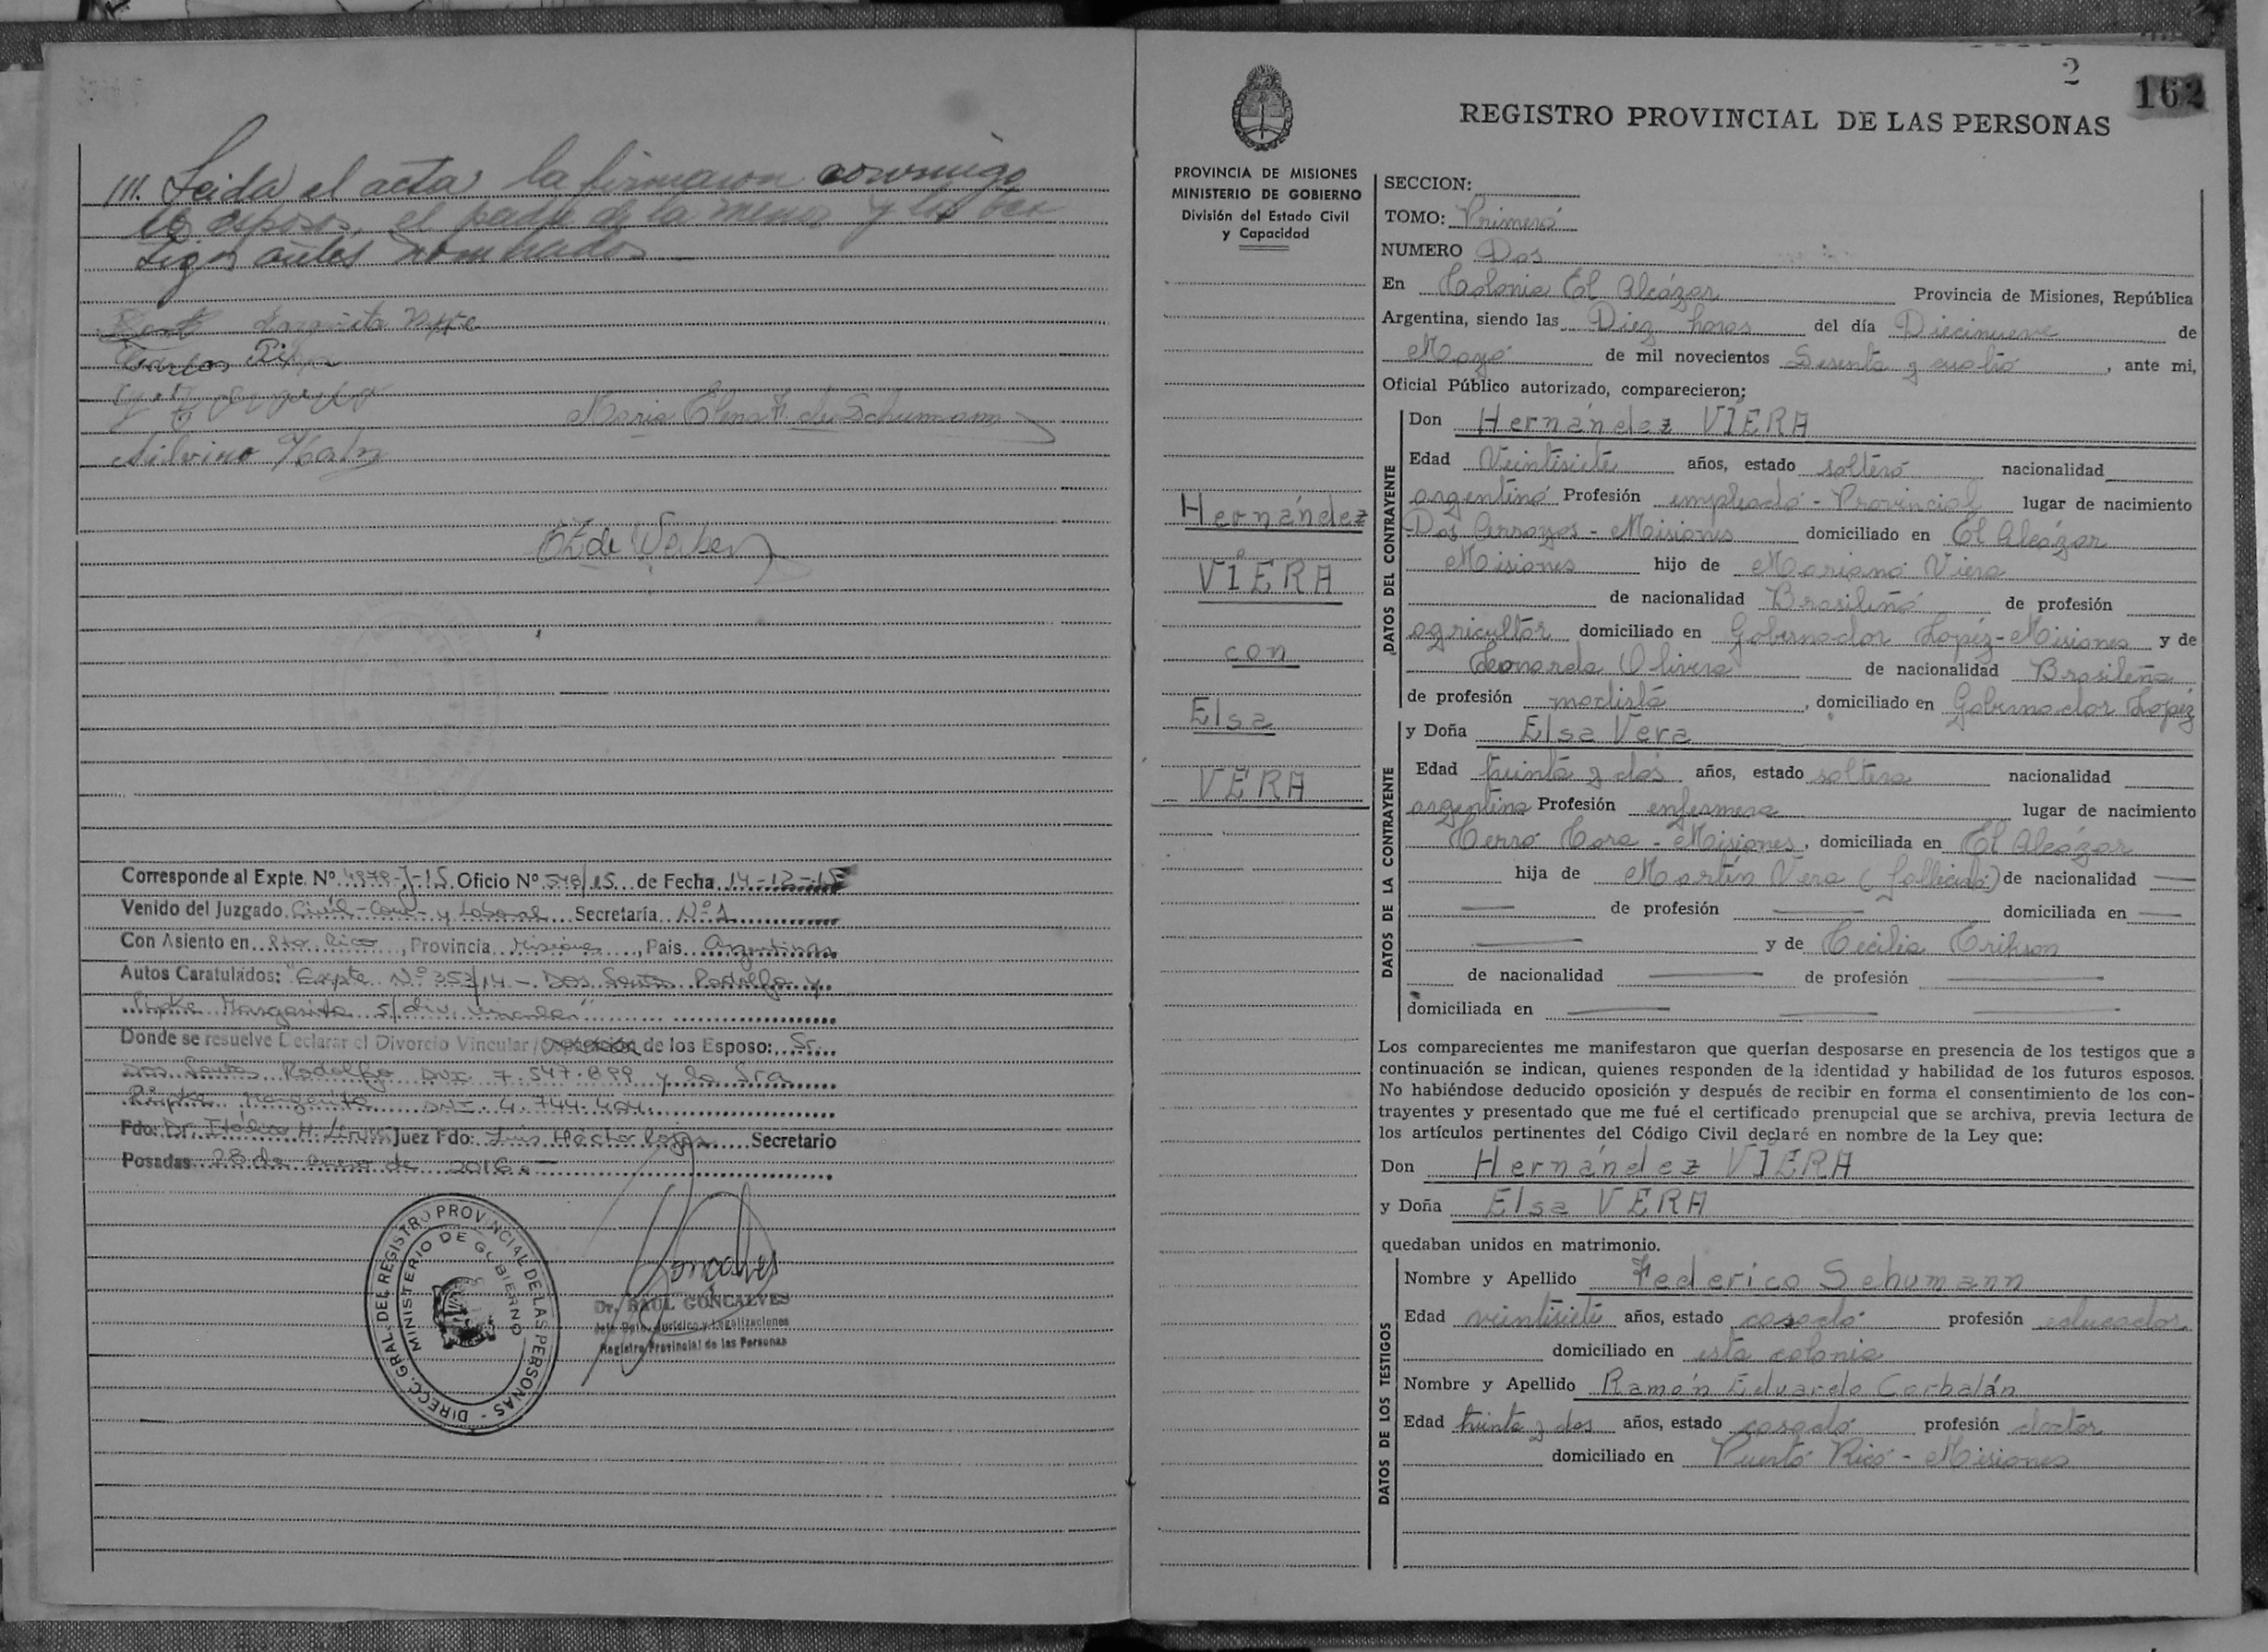 ///. Leida el acta la firmaron conmigo
los esposos, el padre de la menor y los tes
tigos antes nombrados
Margarita
Carlos
Maria Elena F. de Schumann
Silvino Kaly
de Weber
Corresponde al Expte. Nº 4979-J-15 Oficio Nº 548/15 de Fecha 14-12-15
Venido del Juzgado Civil-Com- y Laboral Secretaría Nº 1
Con Asiento en Pto Rico, Provincia Misiones, País Argentina
Autos Caratulados: "Expte Nº 353/14 - Dos Santos Rodolfo y
Margarita s/ div. vincular"
Donde se resuelve Declarar el Divorcio Vincular / de los Esposo: Sr.
Dos Santos Rodolfo DNI 7.547.899 y la Sra
Margarita DNI. 4.744.404
Fdo: Dr. Italico H. Juez Fdo: Luis Hector Rojas Secretario
Posadas 28 de enero de 2016.-
DIRECC. GRAL. DEL REGISTRO PROVINCIAL DE LAS PERSONAS -
MINISTERIO DE GOBIERNO
Gonçalves
Dr. RAUL GONÇALVES
Jefe Dpto. Jurídico y Legalizaciones
Registro Provincial de las Personas
2
162
REGISTRO PROVINCIAL DE LAS PERSONAS
PROVINCIA DE MISIONES
MINISTERIO DE GOBIERNO
División del Estado Civil
y Capacidad
Hernández
VIERA
con
Elsa
VERA
SECCION:
TOMO: Primero
NUMERO Dos
En Colonia El Alcázar Provincia de Misiones, República
Argentina, siendo las Diez horas del día Diecinueve de
Mayo de mil novecientos Sesenta y cuatro, ante mi,
Oficial Público autorizado, comparecieron:
DATOS DEL CONTRAYENTE
Don Hernández VIERA
Edad Veintisiete años, estado soltero nacionalidad
argentino Profesión empleado - Provincial lugar de nacimiento
Dos Arroyos - Misiones domiciliado en El Alcázar
Misiones hijo de Mariano Viera
de nacionalidad Brasileño de profesión
agricultor domiciliado en Gobernador López-Misiones y de
Leonarda Olivera de nacionalidad Brasileña
de profesión modista, domiciliado en Gobernador López
DATOS DE LA CONTRAYENTE
y Doña Elsa Vera
Edad treinta y dos años, estado soltera nacionalidad
argentina Profesión enfermera lugar de nacimiento
Cerro Cora - Misiones, domiciliada en El Alcázar
hija de Martín Vera (fallecido) de nacionalidad —
— de profesión — domiciliada en —
— y de Cecilia Erikson
de nacionalidad — de profesión —
domiciliada en — — —
Los comparecientes me manifestaron que querían desposarse en presencia de los testigos que a
continuación se indican, quienes responden de la identidad y habilidad de los futuros esposos.
No habiéndose deducido oposición y después de recibir en forma el consentimiento de los con-
trayentes y presentado que me fué el certificado prenupcial que se archiva, previa lectura de
los artículos pertinentes del Código Civil declaré en nombre de la Ley que:
Don Hernández VIERA
y Doña Elsa VERA
quedaban unidos en matrimonio.
DATOS DE LOS TESTIGOS
Nombre y Apellido Federico Schumann
Edad veintisiete años, estado casado profesión educador
domiciliado en esta colonia
Nombre y Apellido Ramón Eduardo Corbalán
Edad treinta y dos años, estado casado profesión doctor
domiciliado en Puerto Rico - Misiones